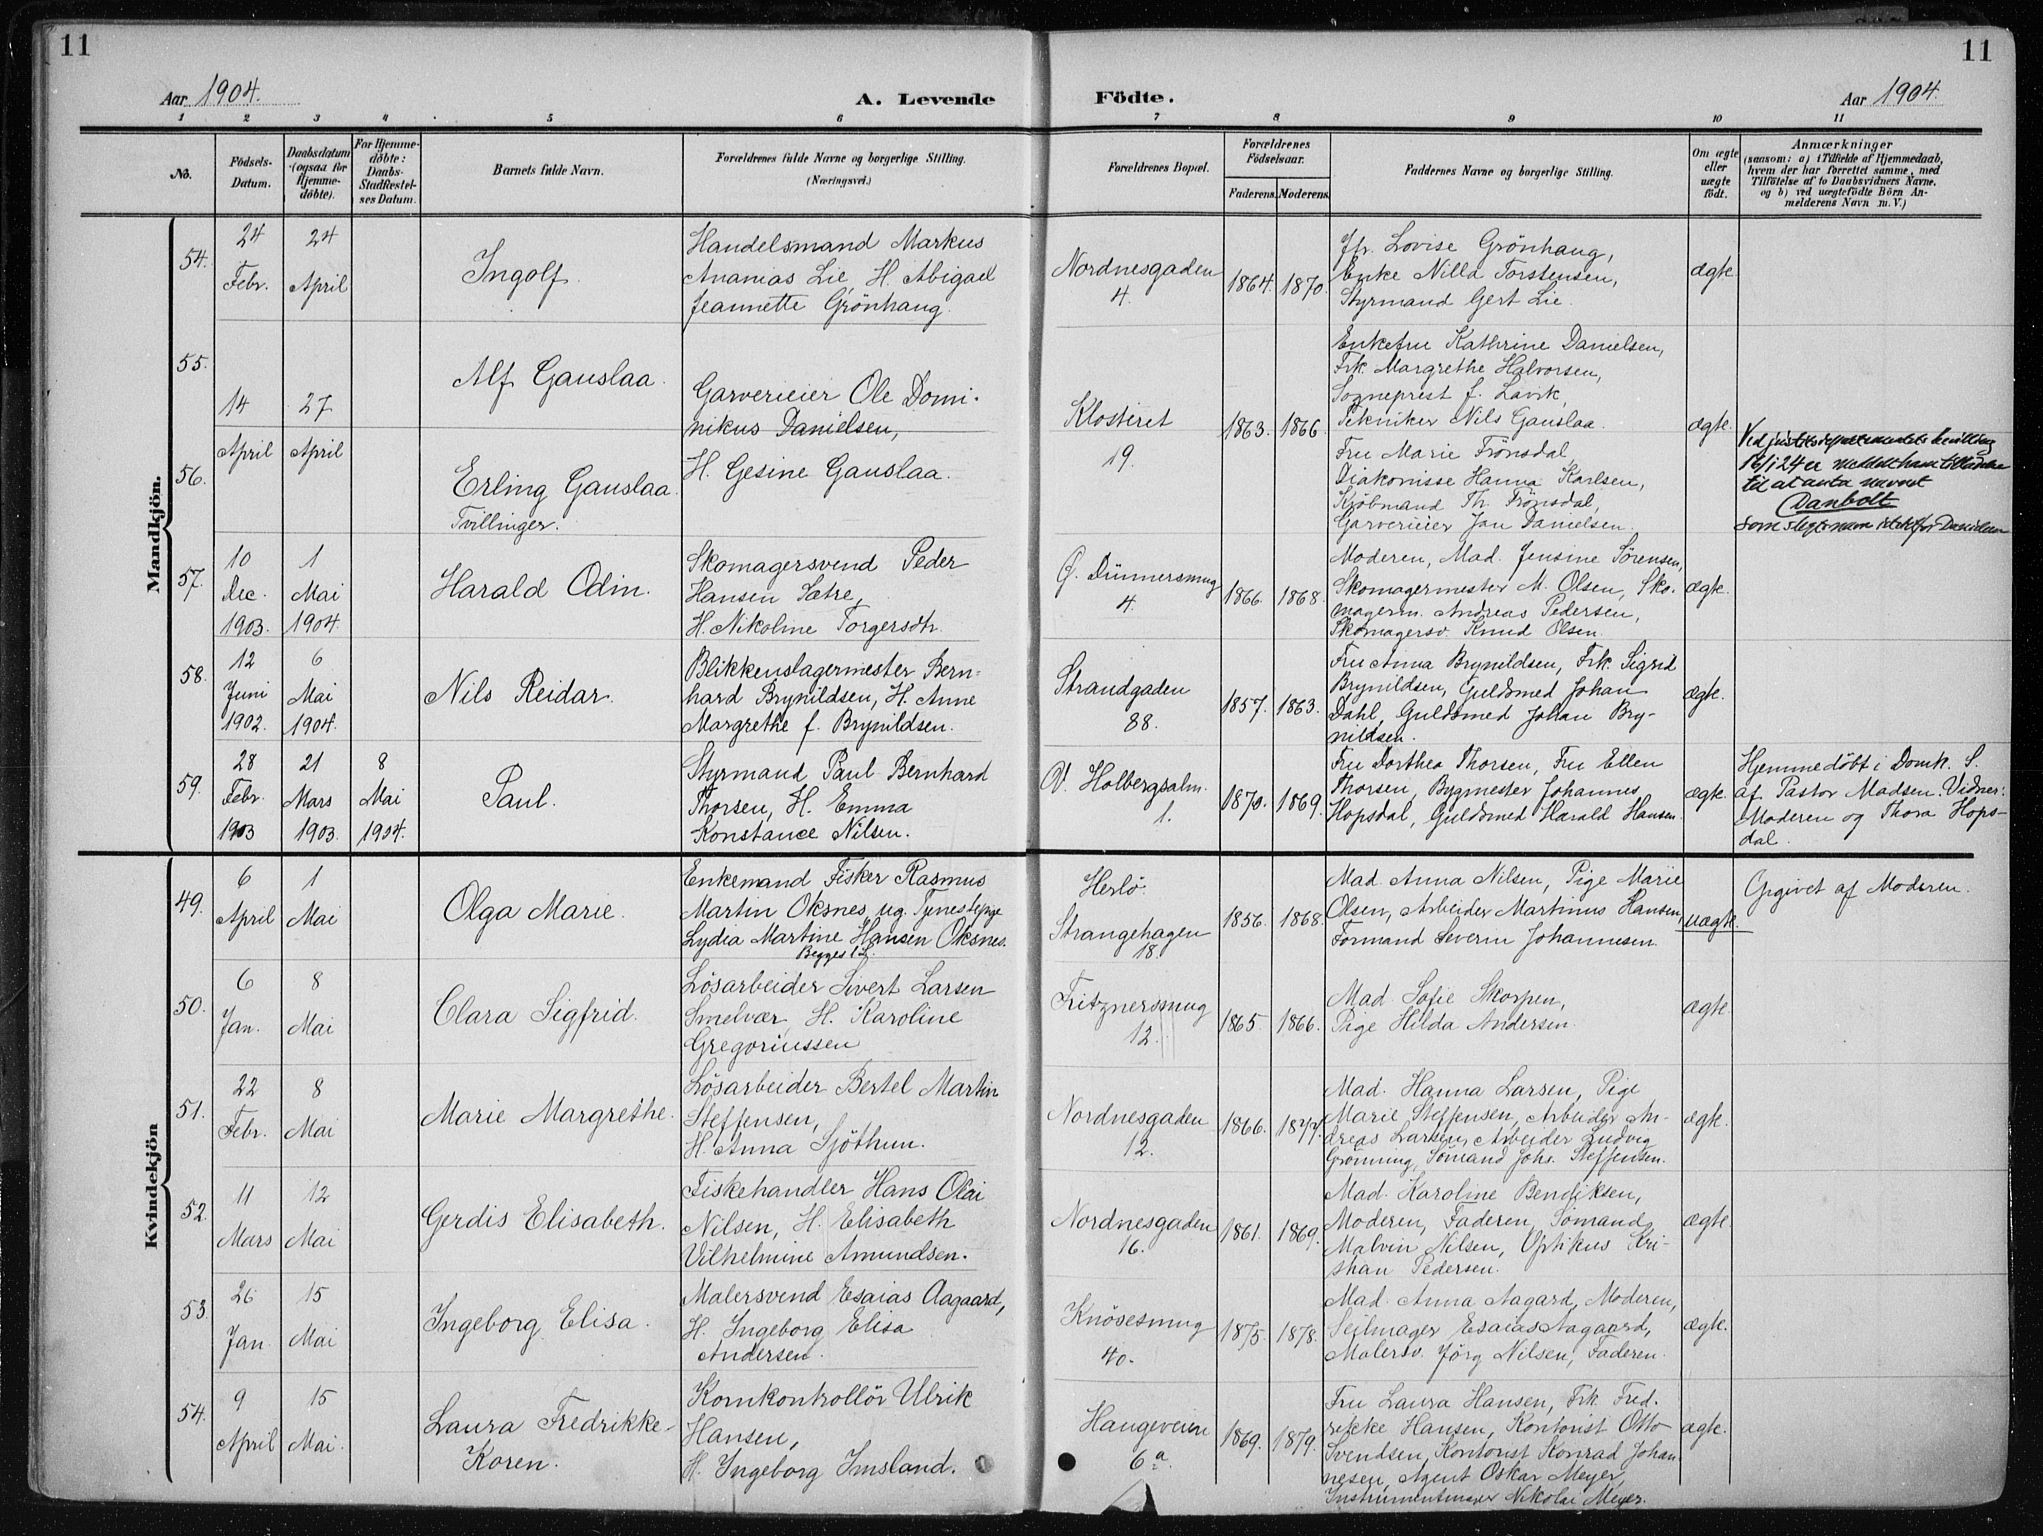 11
11
Aar 1904.
A. Levende
Födte.
Aar 1904.
1 2 3 4 5 6 7 8 9 10 11
No.
Fødsels-Datum.
Daabsdatum (ogsaa for Hjemmedøbte).
For Hjemmedøbte: Daabs-Stadfæstelses Datum.
Barnets fulde Navn.
Forældrenes fulde Navne og borgerlige Stilling.
(Næringsvei.)
Forældrenes Bopæl.
Forældrenes Fødselsaar.
Faderens. Moderens.
Faddernes Navne og borgerlige Stilling.
Om ægte eller uægte født.
Anmærkninger
(saasom: a) i Tilfælde af Hjemmedaab,
hvem der har forrettet samme, med
Tilføielse af to Daabsvidners Navne,
og b) ved uægtefødte Børn An-
melderens Navn m. V.)
Mandkjön.
54.
24 Febr.
24 April
Ingolf.
Handelsmand Markus
Ananias Lie, H. Abigael
Jeannette Grönhaug.
Nordnesgaden
4.
1864. 1870.
Jfr. Lovise Grönhaug,
Enke Nilla Torstensen,
Styrmand Gert Lie.
ægte.
55.
14 April
27 April
Alf Gauslaa.
Garverieier Ole Domi-
nikus Danielsen,
H. Gesine Gauslaa.
Klosteret
19.
1863. 1866.
Enkefru Kathrine Danielsen,
Frk. Margrethe Halvorsen,
Sogneprest f. Lavik,
Tekniker Nils Gauslaa.
ægte.
56.
Erling Gauslaa.
Tvillinger.
Fru Marie Frönsdal,
Diakonisse Hanna Karlsen,
Kjöbmand Th. Frönsdal,
Garverieier Jan Danielsen.
Ved justitsdepartementets bevilling
16/1 24 er meddelt ham tilladelse
til at anta navnet
Danbolt
som slegtsnavn istedetfor Danielsen
57.
10 Dec. 1903.
1 Mai 1904.
Harald Odin.
Skomagersvend Peder
Hansen Sætre,
H. Nikoline Torgersdtr.
Ö. Dünnersmug
4.
1866. 1868.
Moderen, Mad. Jensine Sørensen,
Skomagermester M. Olsen, Sko-
magerm. Andreas Pedersen,
Skomagersv. Knud Olsen.
ægte.
58.
12 Juni 1902.
6 Mai 1904.
Nils Reidar.
Blikkenslagermester Bern-
hard Brynildsen, H. Anne
Margrethe f. Brynildsen.
Strandgaden
88.
1857. 1863.
Fru Anna Brynildsen, Frk. Sigrid
Brynildsen, Guldsmed Johan
Dahl, Guldsmed Johan Bry-
nildsen.
ægte.
59.
28 Febr. 1903
21 Mars 1903.
8 Mai 1904.
Paul.
Styrmand Paul Bernhard
Thorsen, H. Emma
Konstance Nilsen.
Holbergsalm.
1.
1870. 1869.
Fru Dorthea Thorsen, Fru Ellen
Thorsen, Bygmester Johannes
Hopsdal, Guldsmed Harald Hansen.
ægte.
Hjemmedöbt i Domk. S.
af Pastor Madsen. Vidner:
Moderen og Thora Hops-
dal.
Kvindekjön
49.
6 April
1 Mai
Olga Marie.
Enkemand Fisker Rasmus
Martin Oksnes, ug. Tjenestepge
Lydia Martine Hansen Oksnes.
Begges 1ste
Herlö.
Strangehagen
18.
1856. 1868.
Mad. Anna Nilsen, Pige Marie
Olsen, Arbeider Martinus Hansen,
Formand Severin Johannesen.
uægte.
Opgivet af Moderen.
50.
6 Jan.
8 Mai
Clara Sigfrid.
Lösarbeider Sivert Larsen
Smelvær, H. Karoline
Gregoriussen
Fritznersmug
12.
1865. 1866.
Mad. Sofie Skorpen,
Pige Hilda Andersen.
ægte.
51.
22 Febr.
8 Mai
Marie Margrethe.
Lösarbeider Bertel Martin
Steffensen,
H. Anna Sjöthun.
Nordnesgaden
12.
1866. 1877.
Mad. Hanna Larsen, Pige
Marie Steffensen, Arbeider An-
dreas Larsen, Arbeider Ludvig
Grønning, Sømand Johs. Steffensen.
ægte.
52.
11 Mars
12 Mai
Gerdis Elisabeth.
Fiskehandler Hans Olai
Nilsen, H. Elisabeth
Vilhelmine Amundsen.
Nordnesgaden
16.
1861. 1869.
Mad. Karoline Bendiksen,
Moderen, Faderen, Sømand
Malvin Nilsen, Optikus Kri-
stian Pedersen.
ægte.
53.
26 Jan.
15 Mai
Ingeborg Elisa.
Malersvend Esaias Aagaard,
H. Ingeborg Elisa
Andersen.
Knösesmug
40.
1875. 1878.
Mad. Anna Aagard, Moderen,
Seilmager Esaias Aagaard,
Malersv. Jörg Nilsen, Faderen.
ægte.
54.
9 April
15 Mai.
Laura Fredrikke
Koren.
Kornkontrollör Ulrik
Hansen,
H. Ingeborg Imsland.
Haugeveien
6a.
1869. 1879.
Fru Laura Hansen, Frk. Fred-
rikke Hansen, Kontorist Otto
Svendsen, Kontorist Konrad Johan-
nesen, Agent Oskar Meyer,
Instrumentmager Nikolai Meyer.
ægte.